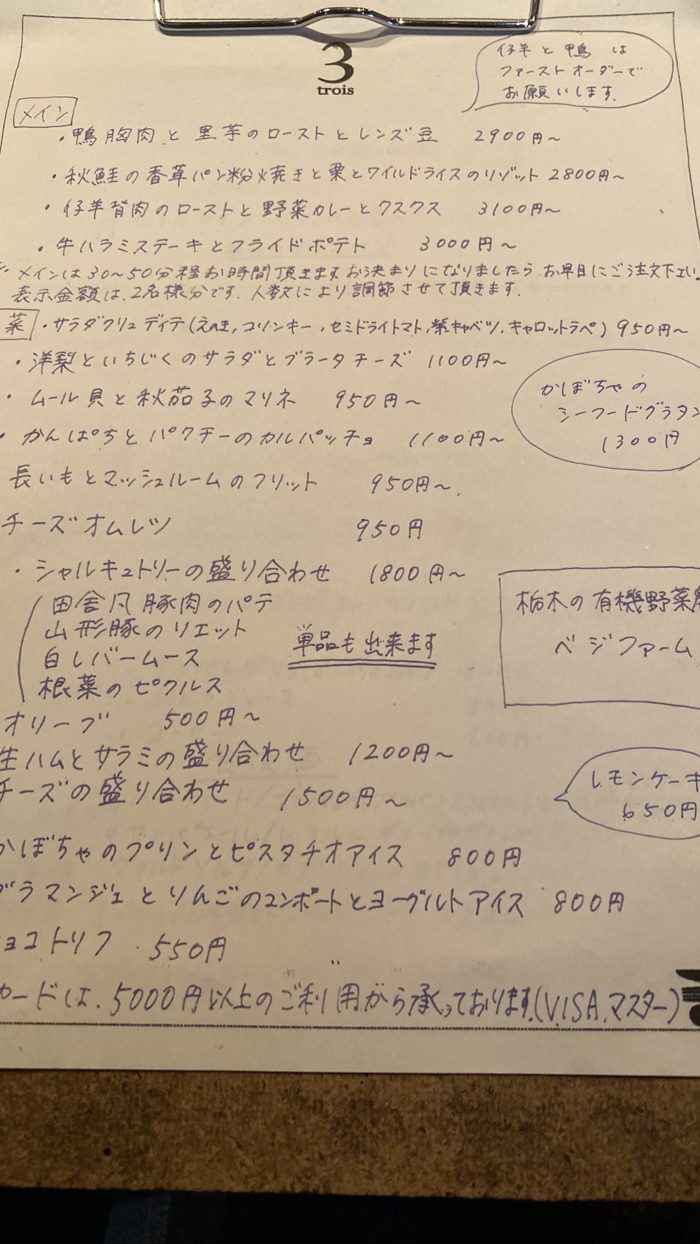 3
trois
仔羊と鴨は
ファーストオーダーで
お願いします。
メイン
・鴨胸肉と里芋のローストとレンズ豆 2900円〜
・秋鮭の香草パン粉焼きと栗とワイルドライスのリゾット 2800円〜
・仔羊背肉のローストと野菜カレーとクスクス 3100円〜
・牛ハラミステーキとフライドポテト 3000円〜
メインは30〜50分程お時間頂きます。お決まりになりましたらお早目にご注文下さい。
表示金額は、2名様分です。人数により調節させて頂きます。
菜 ・サラダクリュディテ(えのき、コリンキー、セミドライトマト、紫キャベツ、キャロットラペ) 950円〜
・洋梨といちじくのサラダとブラータチーズ 1100円〜
・ムール貝と秋茄子のマリネ 950円〜
・かんぱちとパクチーのカルパッチョ 1100円〜
かぼちゃの
シーフードグラタン
1300円
長いもとマッシュルームのフリット 950円〜
チーズオムレツ 950円
・シャルキュトリーの盛り合わせ 1800円〜
田舎風豚肉のパテ
山形豚のリエット
白レバームース
根菜のピクルス
単品も出来ます
栃木の有機野菜
ベジファーム
オリーブ 500円〜
生ハムとサラミの盛り合わせ 1200円〜
チーズの盛り合わせ 1500円〜
レモンケーキ
650円
かぼちゃのプリンとピスタチオアイス 800円
ブラマンジェとりんごのコンポートとヨーグルトアイス 800円
ョコトリフ 550円
カードは、5000円以上のご利用から承っております。(VISA、マスター)